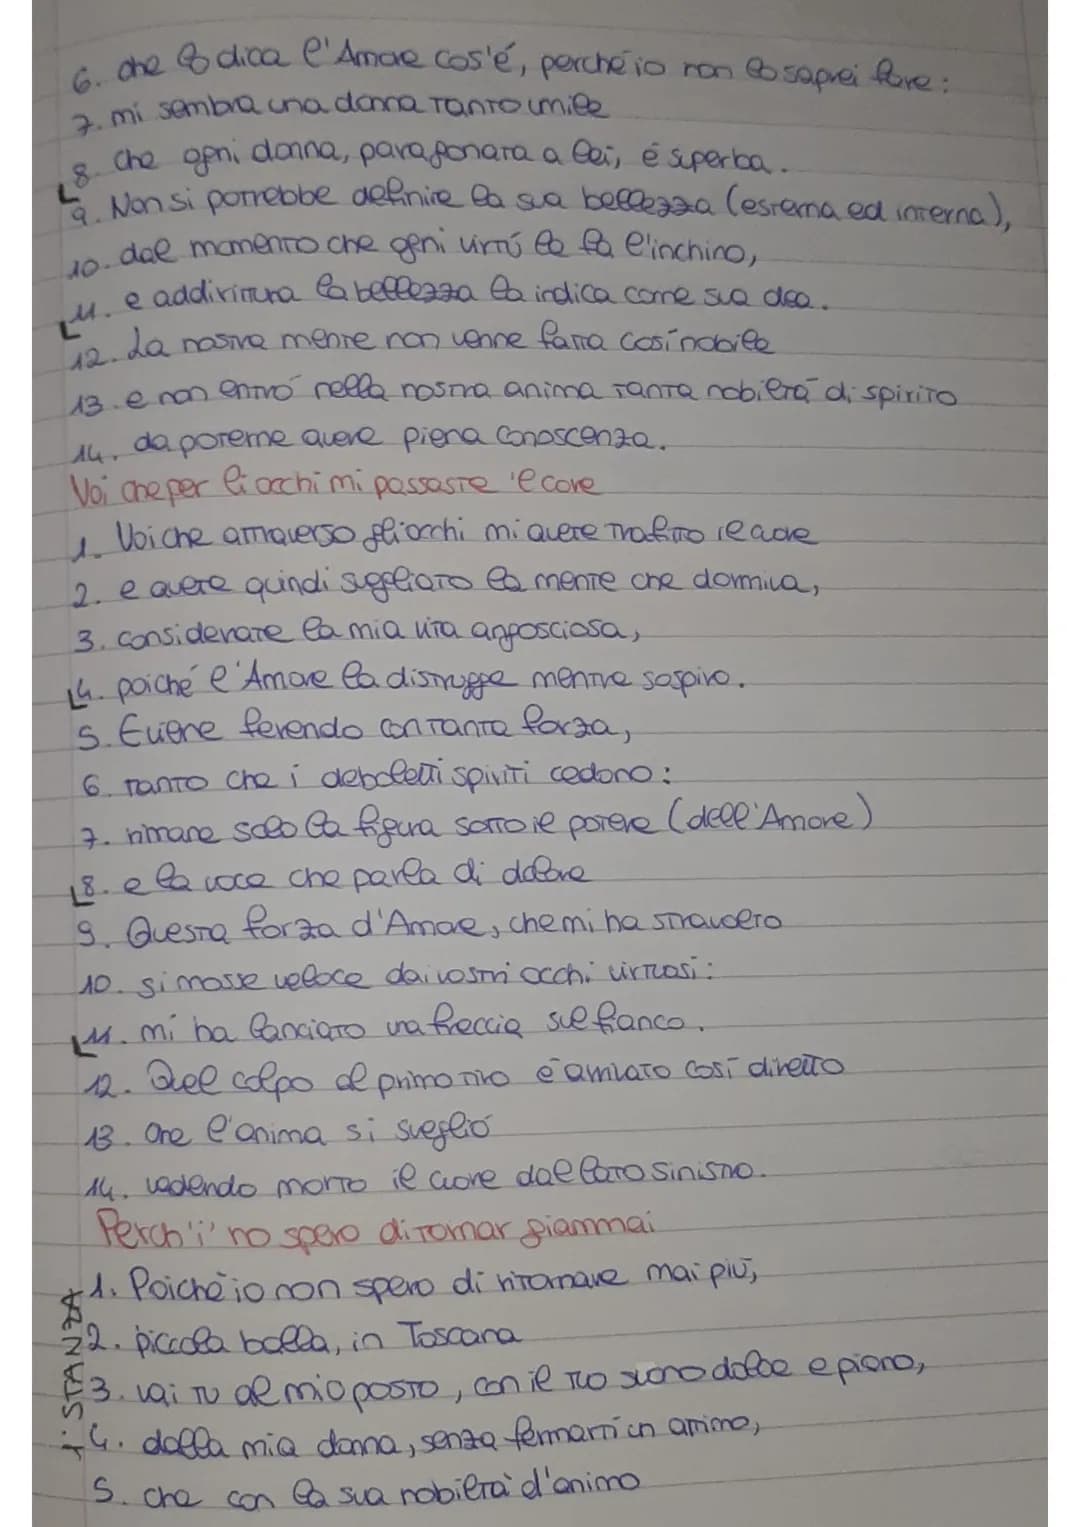 6. che lo dica l'Amore cos'é, perché io non lo saprei fare:
7. mi sembra una donna tanto umile
8. che ogni donna, paragonata a lei, é superba.
9. Non si potrebbe definire la sua bellezza (esterna ed interna),
10. dal momento che ogni virtú le fa l'inchino,
11. e addirittura la bellezza la indica come sua dea.
12. La nostra mente non venne fatta cosí nobile
13. e non entró nella nostra anima tanta nobiltà di spirito
14. da poterne avere piena conoscenza.
Voi che per li occhi mi passaste 'l core
1. Voi che attraverso gli occhi mi avete trafitto il cuore
2. e avete quindi svegliato la mente che dormiva,
3. considerate la mia vita angosciosa,
4. poiché l'Amore la distrugge mentre sospiro.
5. E viene ferendo con tanta forza,
6. tanto che i deboletti spiriti cedono:
7. rimane solo la figura sotto il potere (dell'Amore)
8. e la voce che parla di dolore
9. Questa forza d'Amore, che mi ha stravolto
10. si mosse veloce dai vostri occhi virtuosi:
11. mi ha lanciato una freccia sul fianco.
12. Quel colpo al primo tiro é arrivato cosí diretto
13. che l'anima si svegliò
14. vedendo morto il cuore dal lato sinistro.
Perch'i' no spero di tornar giammai
1. Poiché io non spero di ritornare mai più,
2. piccola balla, in Toscana
3. vai tu al mio posto, con il tuo suono dolce e piano,
4. dalla mia donna, senza fermarti un attimo,
5. che con la sua nobiltà d'animo
1. STANZA